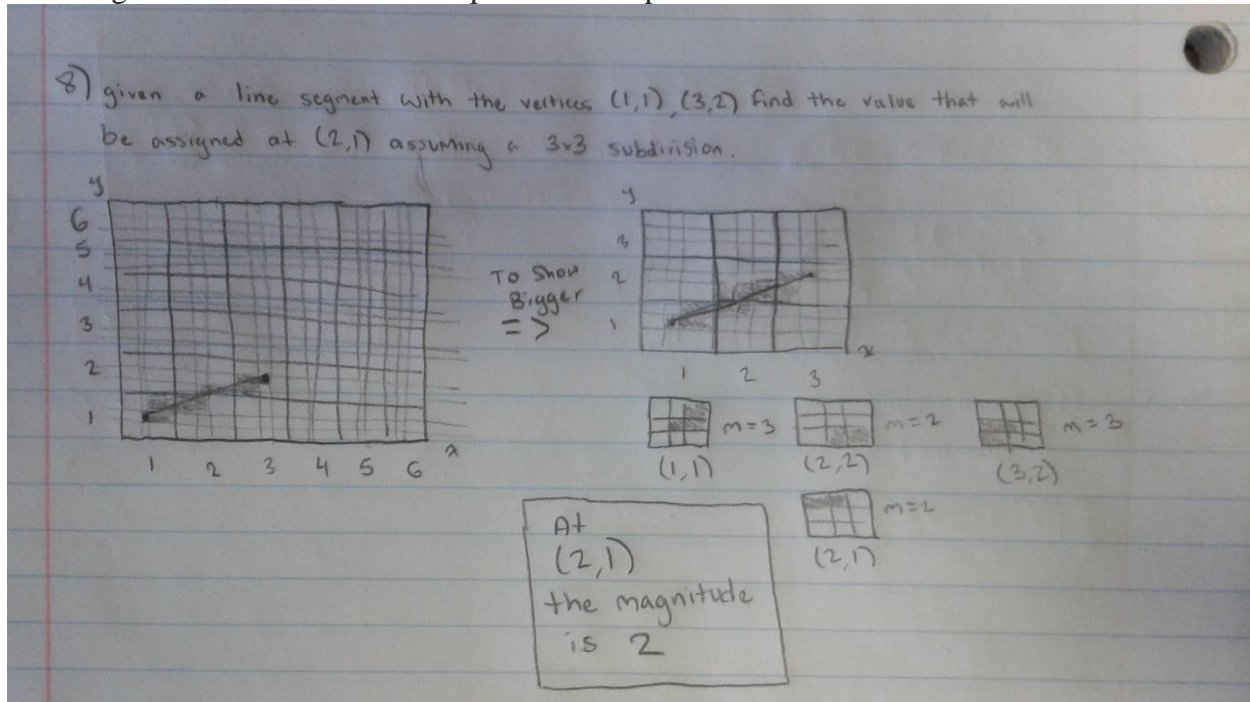 8) given a line segment with the vertices (1,1), (3,2) find the value that will
be assigned at (2,1) assuming a 3x3 subdivision.
y
6
5
4
3
2
1
1 2 3 4 5 6 x
To Show
Bigger
=>
y
3
2
1
x
1 2 3
m=3 m=2 m=3
(1,1) (2,2) (3,2)
m=2
(2,1)
At
(2,1)
the magnitude
is 2